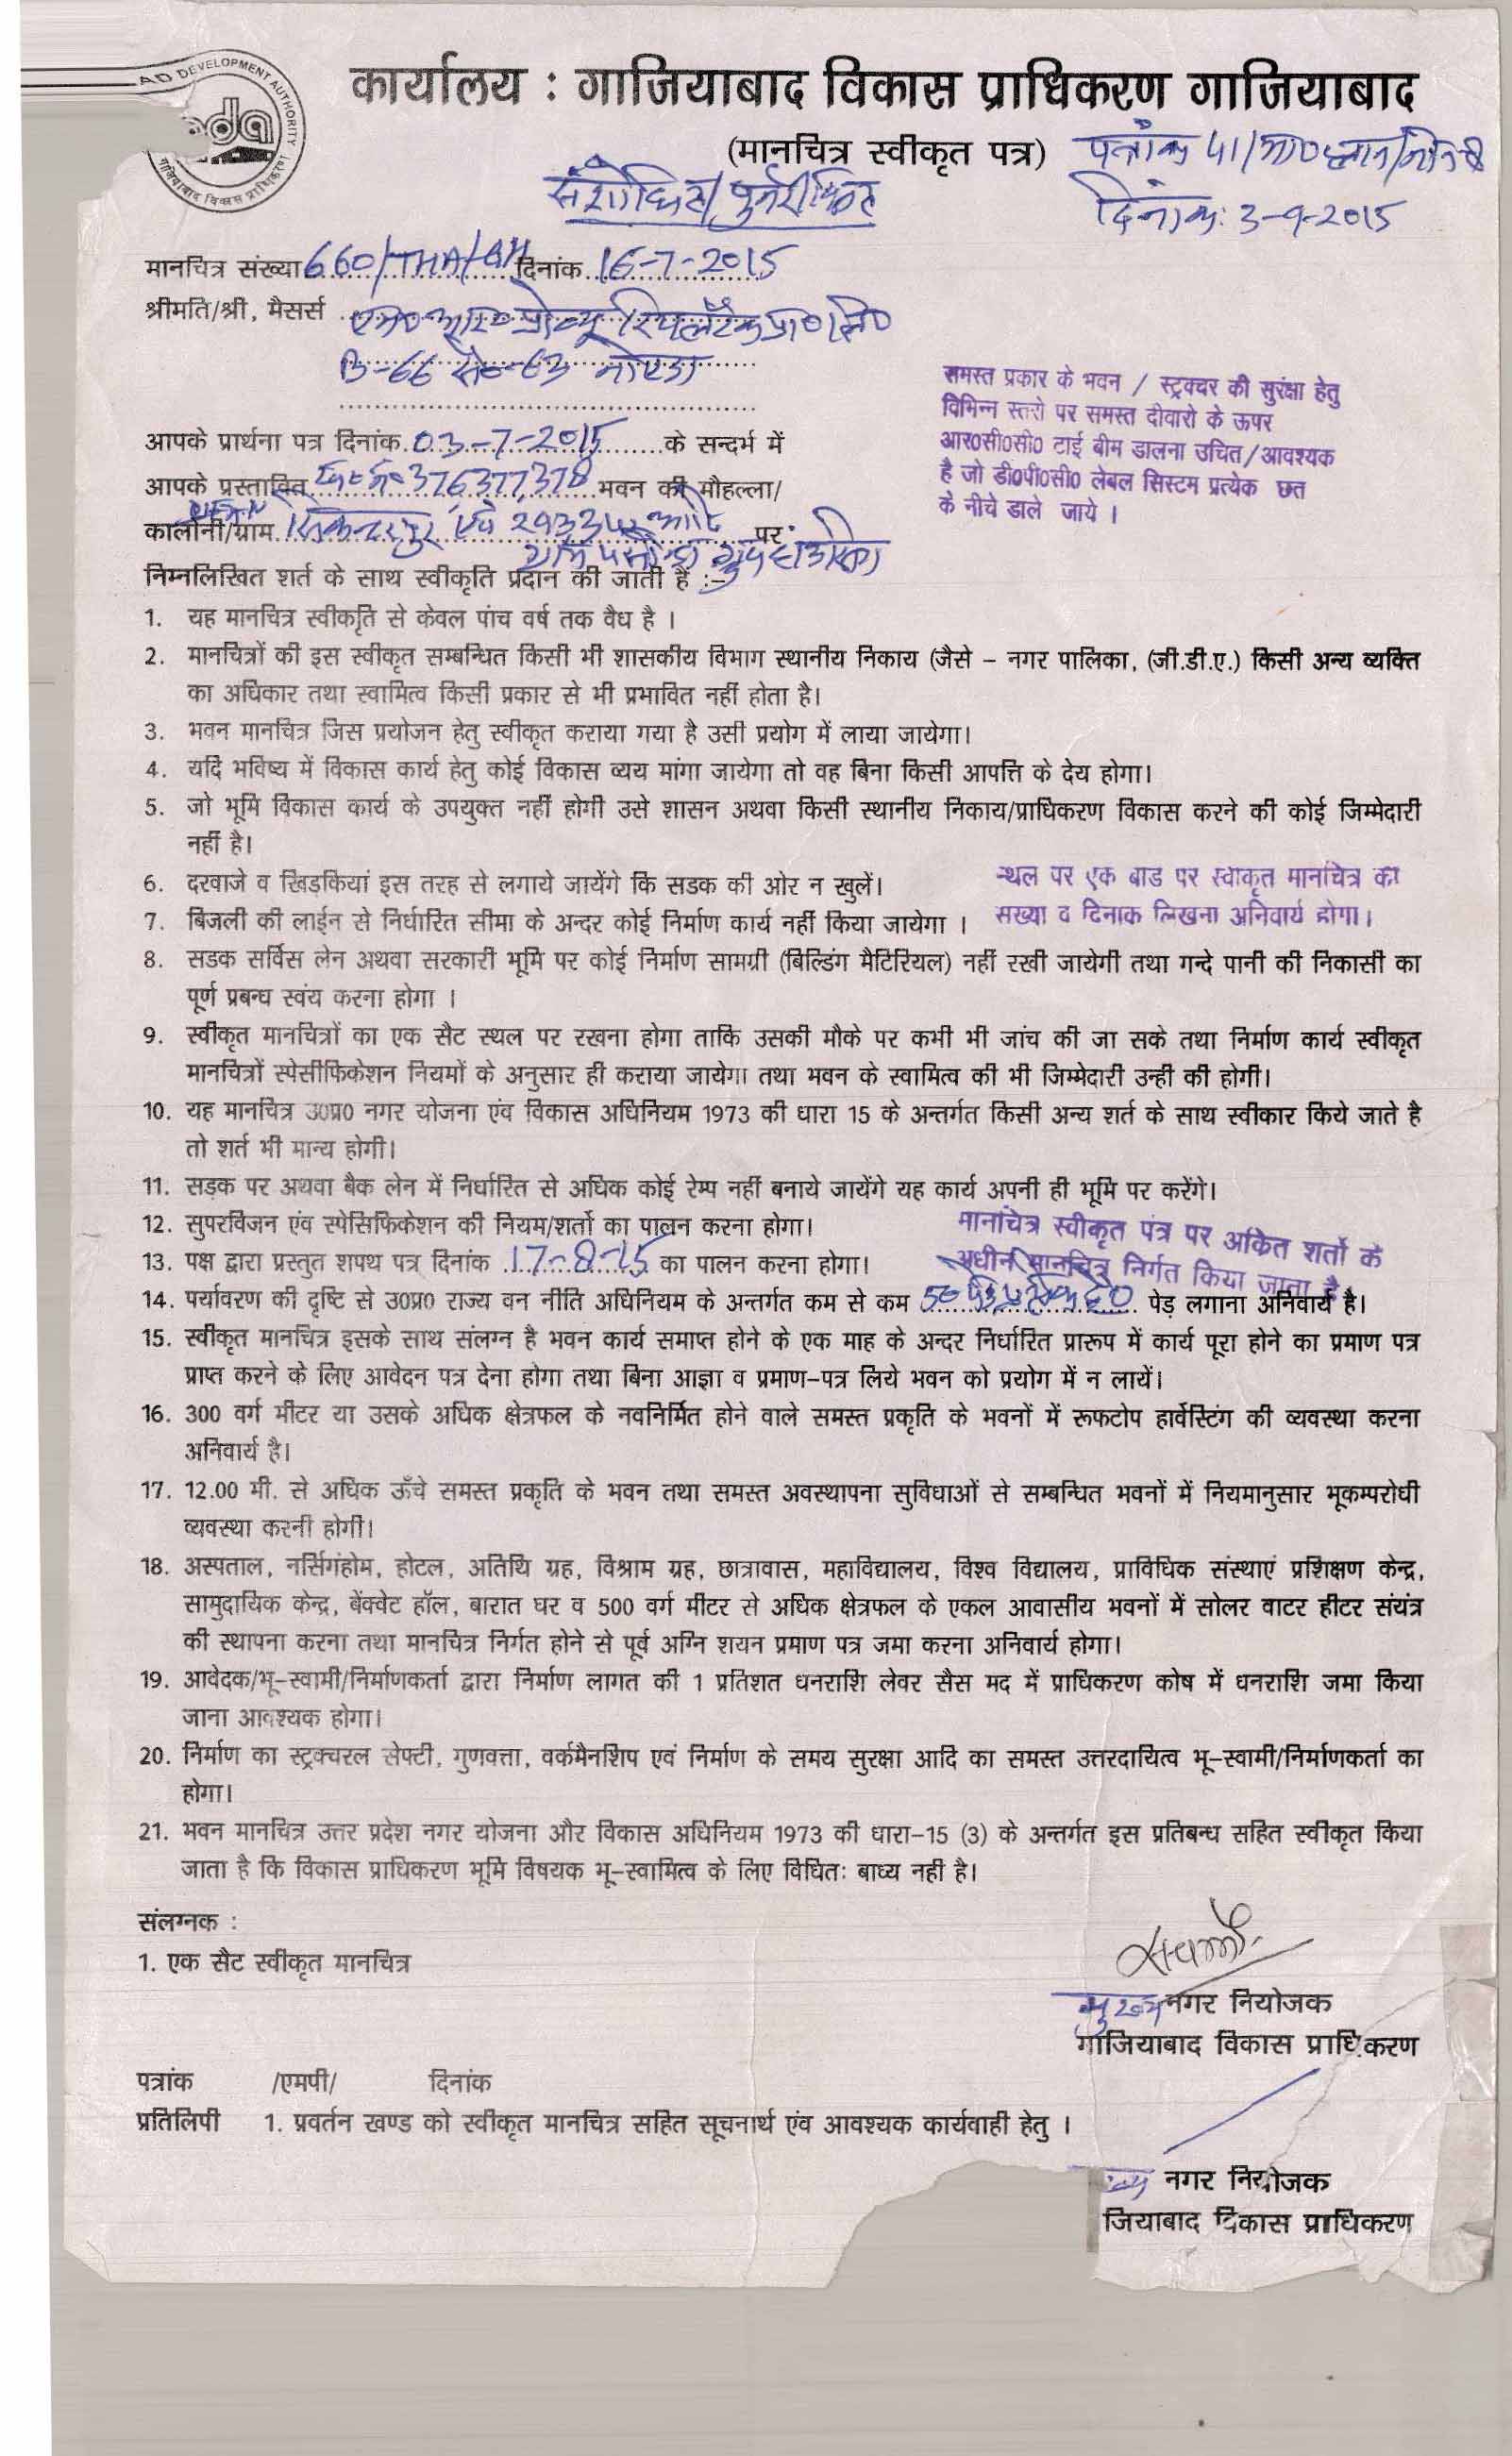 AD DEVELOPMENT AUTHORITY
गाजियाबाद विकास प्राधिकरण
कार्यालय : गाजियाबाद विकास प्राधिकरण गाजियाबाद
(मानचित्र स्वीकृत पत्र) पत्रांक 41/मा0प्लान/
संशोधित/पुर्नरीक्षित
दिनांक: 3-9-2015
मानचित्र संख्या 660/THA/GH दिनांक 16-7-2015
श्रीमति/श्री, मैसर्स एम0आर0 प्रोव्यू रियलटैक प्रा0लि0
B-66 सै0-63 नोएडा
समस्त प्रकार के भवन / स्ट्रक्चर की सुरंक्षा हेतु
विभिन्न स्तरो पर समस्त दीवारो के ऊपर
आर0सी0सी0 टाई बीम डालना उचित/आवश्यक
है जो डी0पी0सी0 लेबल सिस्टम प्रत्येक छत
के नीचे डाले जाये ।
आपके प्रार्थना पत्र दिनांक 03-7-2015 के सन्दर्भ में
आपके प्रस्तावित ख0सं0 376,377,378 भवन की मौहल्ला/
कालोनी/ग्राम सिकन्दरपुर एवं आदि पर
ग्राम पसोंडा ग्रुप हाउसिंग
निम्नलिखित शर्त के साथ स्वीकृति प्रदान की जाती है :–
1. यह मानचित्र स्वीकृति से केवल पांच वर्ष तक वैध है ।
2. मानचित्रों की इस स्वीकृत सम्बन्धित किसी भी शासकीय विभाग स्थानीय निकाय (जैसे – नगर पालिका, (जी.डी.ए.) किसी अन्य व्यक्ति
का अधिकार तथा स्वामित्व किसी प्रकार से भी प्रभावित नहीं होता है।
3. भवन मानचित्र जिस प्रयोजन हेतु स्वीकृत कराया गया है उसी प्रयोग में लाया जायेगा।
4. यदि भविष्य में विकास कार्य हेतु कोई विकास व्यय मांगा जायेगा तो वह बिना किसी आपत्ति के देय होगा।
5. जो भूमि विकास कार्य के उपयुक्त नहीं होगी उसे शासन अथवा किसी स्थानीय निकाय/प्राधिकरण विकास करने की कोई जिम्मेदारी
नहीं है।
6. दरवाजे व खिड़कियां इस तरह से लगाये जायेंगे कि सडक की ओर न खुलें।
7. बिजली की लाईन से निर्धारित सीमा के अन्दर कोई निर्माण कार्य नहीं किया जायेगा ।
स्थल पर एक बोर्ड पर स्वीकृत मानचित्र की
संख्या व दिनांक लिखना अनिवार्य होगा।
8. सडक सर्विस लेन अथवा सरकारी भूमि पर कोई निर्माण सामग्री (बिल्डिंग मैटिरियल) नहीं रखी जायेगी तथा गन्दे पानी की निकासी का
पूर्ण प्रबन्ध स्वंय करना होगा ।
9. स्वीकृत मानचित्रों का एक सैट स्थल पर रखना होगा ताकि उसकी मौके पर कभी भी जांच की जा सके तथा निर्माण कार्य स्वीकृत
मानचित्रों स्पेसीफिकेशन नियमों के अनुसार ही कराया जायेगा तथा भवन के स्वामित्व की भी जिम्मेदारी उन्ही की होगी।
10. यह मानचित्र उ0प्र0 नगर योजना एंव विकास अधिनियम 1973 की धारा 15 के अन्तर्गत किसी अन्य शर्त के साथ स्वीकार किये जाते है
तो शर्त भी मान्य होगी।
11. सड़क पर अथवा बैक लेन में निर्धारित से अधिक कोई रेम्प नहीं बनाये जायेंगे यह कार्य अपनी ही भूमि पर करेंगे।
12. सुपरविजन एंव स्पेसिफिकेशन की नियम/शर्तो का पालन करना होगा।
मानचित्र स्वीकृत पत्र पर अंकित शर्तो के
अधीन मानचित्र निर्गत किया जाता है
13. पक्ष द्वारा प्रस्तुत शपथ पत्र दिनांक 17-8-15 का पालन करना होगा।
14. पर्यावरण की दृष्टि से उ0प्र0 राज्य वन नीति अधिनियम के अन्तर्गत कम से कम 50 पेड़ प्रति है0 पेड़ लगाना अनिवार्य है।
15. स्वीकृत मानचित्र इसके साथ संलग्न है भवन कार्य समाप्त होने के एक माह के अन्दर निर्धारित प्रारूप में कार्य पूरा होने का प्रमाण पत्र
प्राप्त करने के लिए आवेदन पत्र देना होगा तथा बिना आज्ञा व प्रमाण–पत्र लिये भवन को प्रयोग में न लायें।
16. 300 वर्ग मीटर या उसके अधिक क्षेत्रफल के नवनिर्मित होने वाले समस्त प्रकृति के भवनों में रूफटोप हार्वेस्टिंग की व्यवस्था करना
अनिवार्य है।
17. 12.00 मी. से अधिक ऊँचे समस्त प्रकृति के भवन तथा समस्त अवस्थापना सुविधाओं से सम्बन्धित भवनों में नियमानुसार भूकम्परोधी
व्यवस्था करनी होगी।
18. अस्पताल, नर्सिगंहोम, होटल, अतिथि ग्रह, विश्राम ग्रह, छात्रावास, महाविद्यालय, विश्व विद्यालय, प्राविधिक संस्थाएं प्रशिक्षण केन्द्र,
सामुदायिक केन्द्र, बेंक्वेट हॉल, बारात घर व 500 वर्ग मीटर से अधिक क्षेत्रफल के एकल आवासीय भवनों में सोलर वाटर हीटर संयंत्र
की स्थापना करना तथा मानचित्र निर्गत होने से पूर्व अग्नि शयन प्रमाण पत्र जमा करना अनिवार्य होगा।
19. आवेदक/भू–स्वामी/निर्माणकर्ता द्वारा निर्माण लागत की 1 प्रतिशत धनराशि लेवर सैस मद में प्राधिकरण कोष में धनराशि जमा किया
जाना आवश्यक होगा।
20. निर्माण का स्ट्रक्चरल सेफ्टी, गुणवत्ता, वर्कमैनशिप एवं निर्माण के समय सुरक्षा आदि का समस्त उत्तरदायित्व भू–स्वामी/निर्माणकर्ता का
होगा।
21. भवन मानचित्र उत्तर प्रदेश नगर योजना और विकास अधिनियम 1973 की धारा–15 (3) के अन्तर्गत इस प्रतिबन्ध सहित स्वीकृत किया
जाता है कि विकास प्राधिकरण भूमि विषयक भू–स्वामित्व के लिए विधितः बाध्य नहीं है।
संलग्नक :
1. एक सैट स्वीकृत मानचित्र
मुख्य नगर नियोजक
गाजियाबाद विकास प्राधिकरण
पत्रांक /एमपी/ दिनांक
प्रतिलिपी 1. प्रवर्तन खण्ड को स्वीकृत मानचित्र सहित सूचनार्थ एंव आवश्यक कार्यवाही हेतु ।
नगर नियोजक
जियाबाद विकास प्राधिकरण